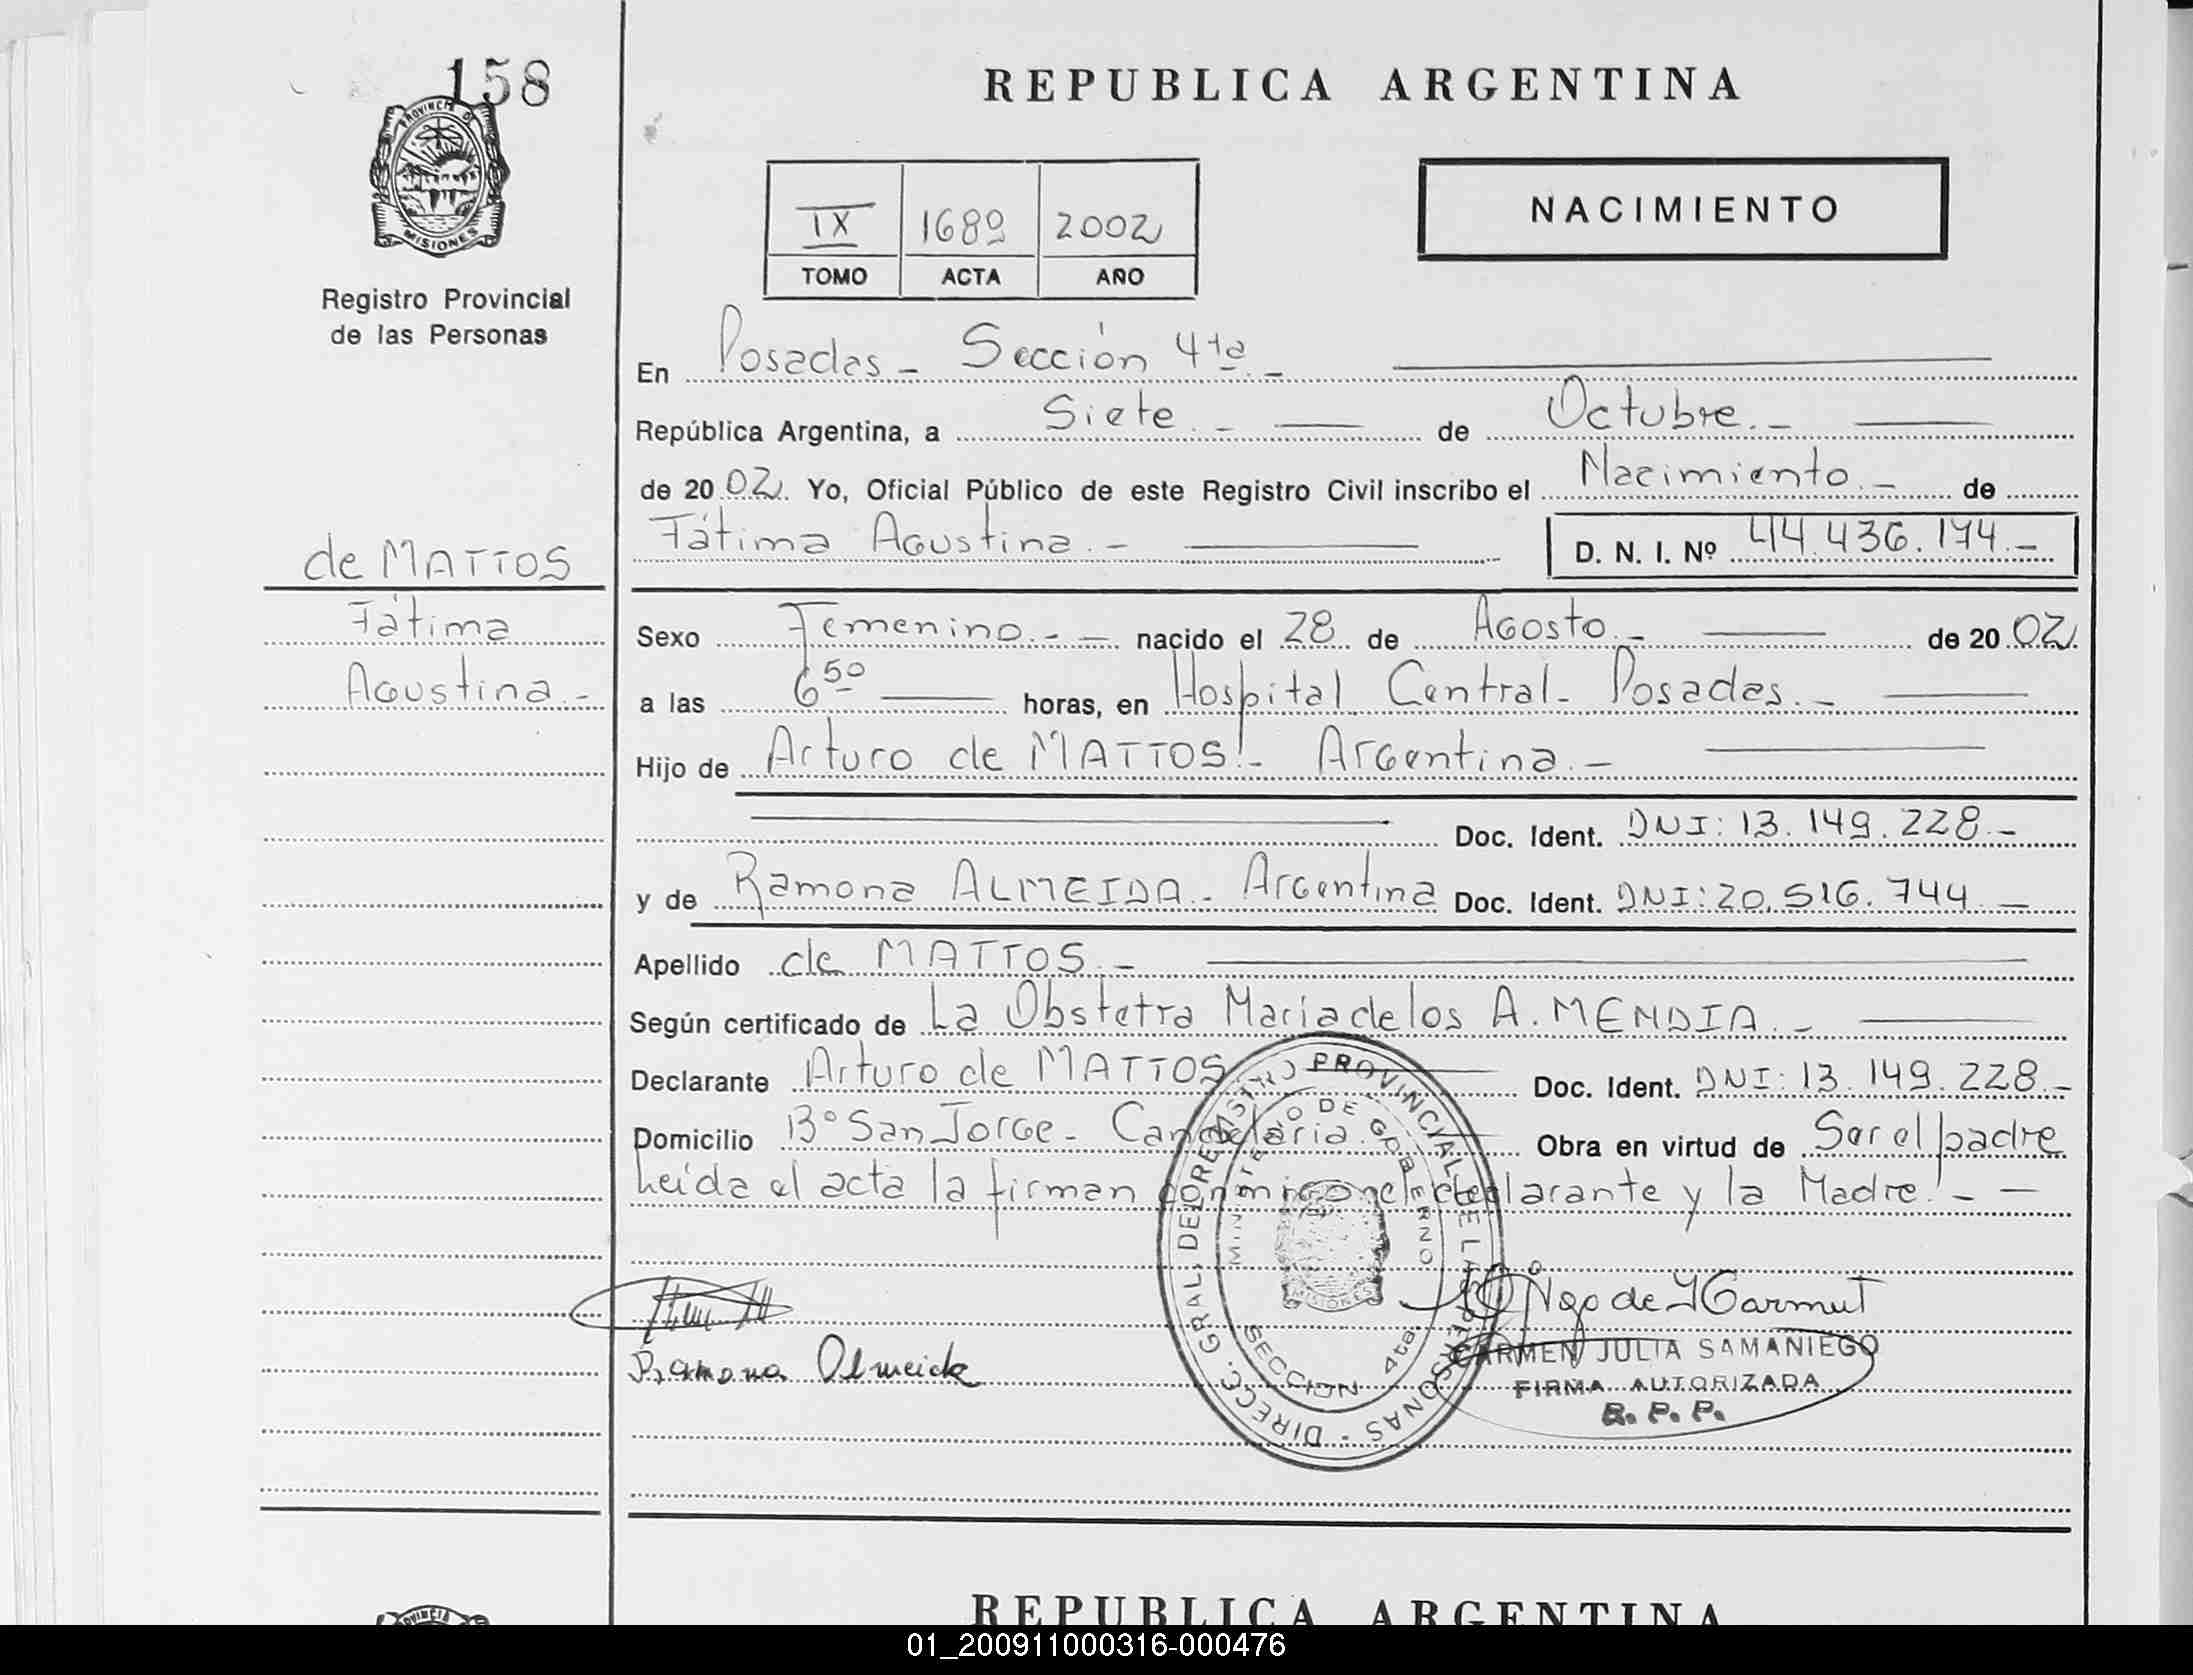 158
PROVINCIA DE
MISIONES
Registro Provincial
de las Personas
REPUBLICA ARGENTINA
IX 1689 2002
TOMO ACTA AÑO
NACIMIENTO
En Posadas - Sección 4ta. -
República Argentina, a Siete. - de Octubre. -
de 20 02. Yo, Oficial Público de este Registro Civil inscribo el Nacimiento. - de
Fátima Agustina. - D. N. I. Nº 44.436.174. -
de MATTOS
Fátima
Agustina. -
Sexo Femenino. - - nacido el 28 de Agosto. - de 20 02
a las 6 50 horas, en Hospital Central - Posadas. -
Hijo de Arturo de MATTOS. - Argentina. -
Doc. Ident. DNI: 13.149.228. -
y de Ramona ALMEIDA. - Argentina Doc. Ident. DNI: 20.516.744. -
Apellido de MATTOS. -
Según certificado de La Obstetra Maria de los A. MENDIA. -
Declarante Arturo de MATTOS Doc. Ident. DNI: 13.149.228. -
Domicilio Bº San Jorge - Candelaria. Obra en virtud de Ser el padre
Leída el acta la firman conmigo el declarante y la Madre. - -
DIRECC. GRAL. DE REGISTRO PROVINCIAL DE LAS PERSONAS -
MINISTERIO DE GOBIERNO
MISIONES
SECCION 4ta.
Ramona Almeida
CARMEN JULIA SAMANIEGO
FIRMA AUTORIZADA
R. P. P.
REPUBLICA ARGENTINA
01_200911000316-000476